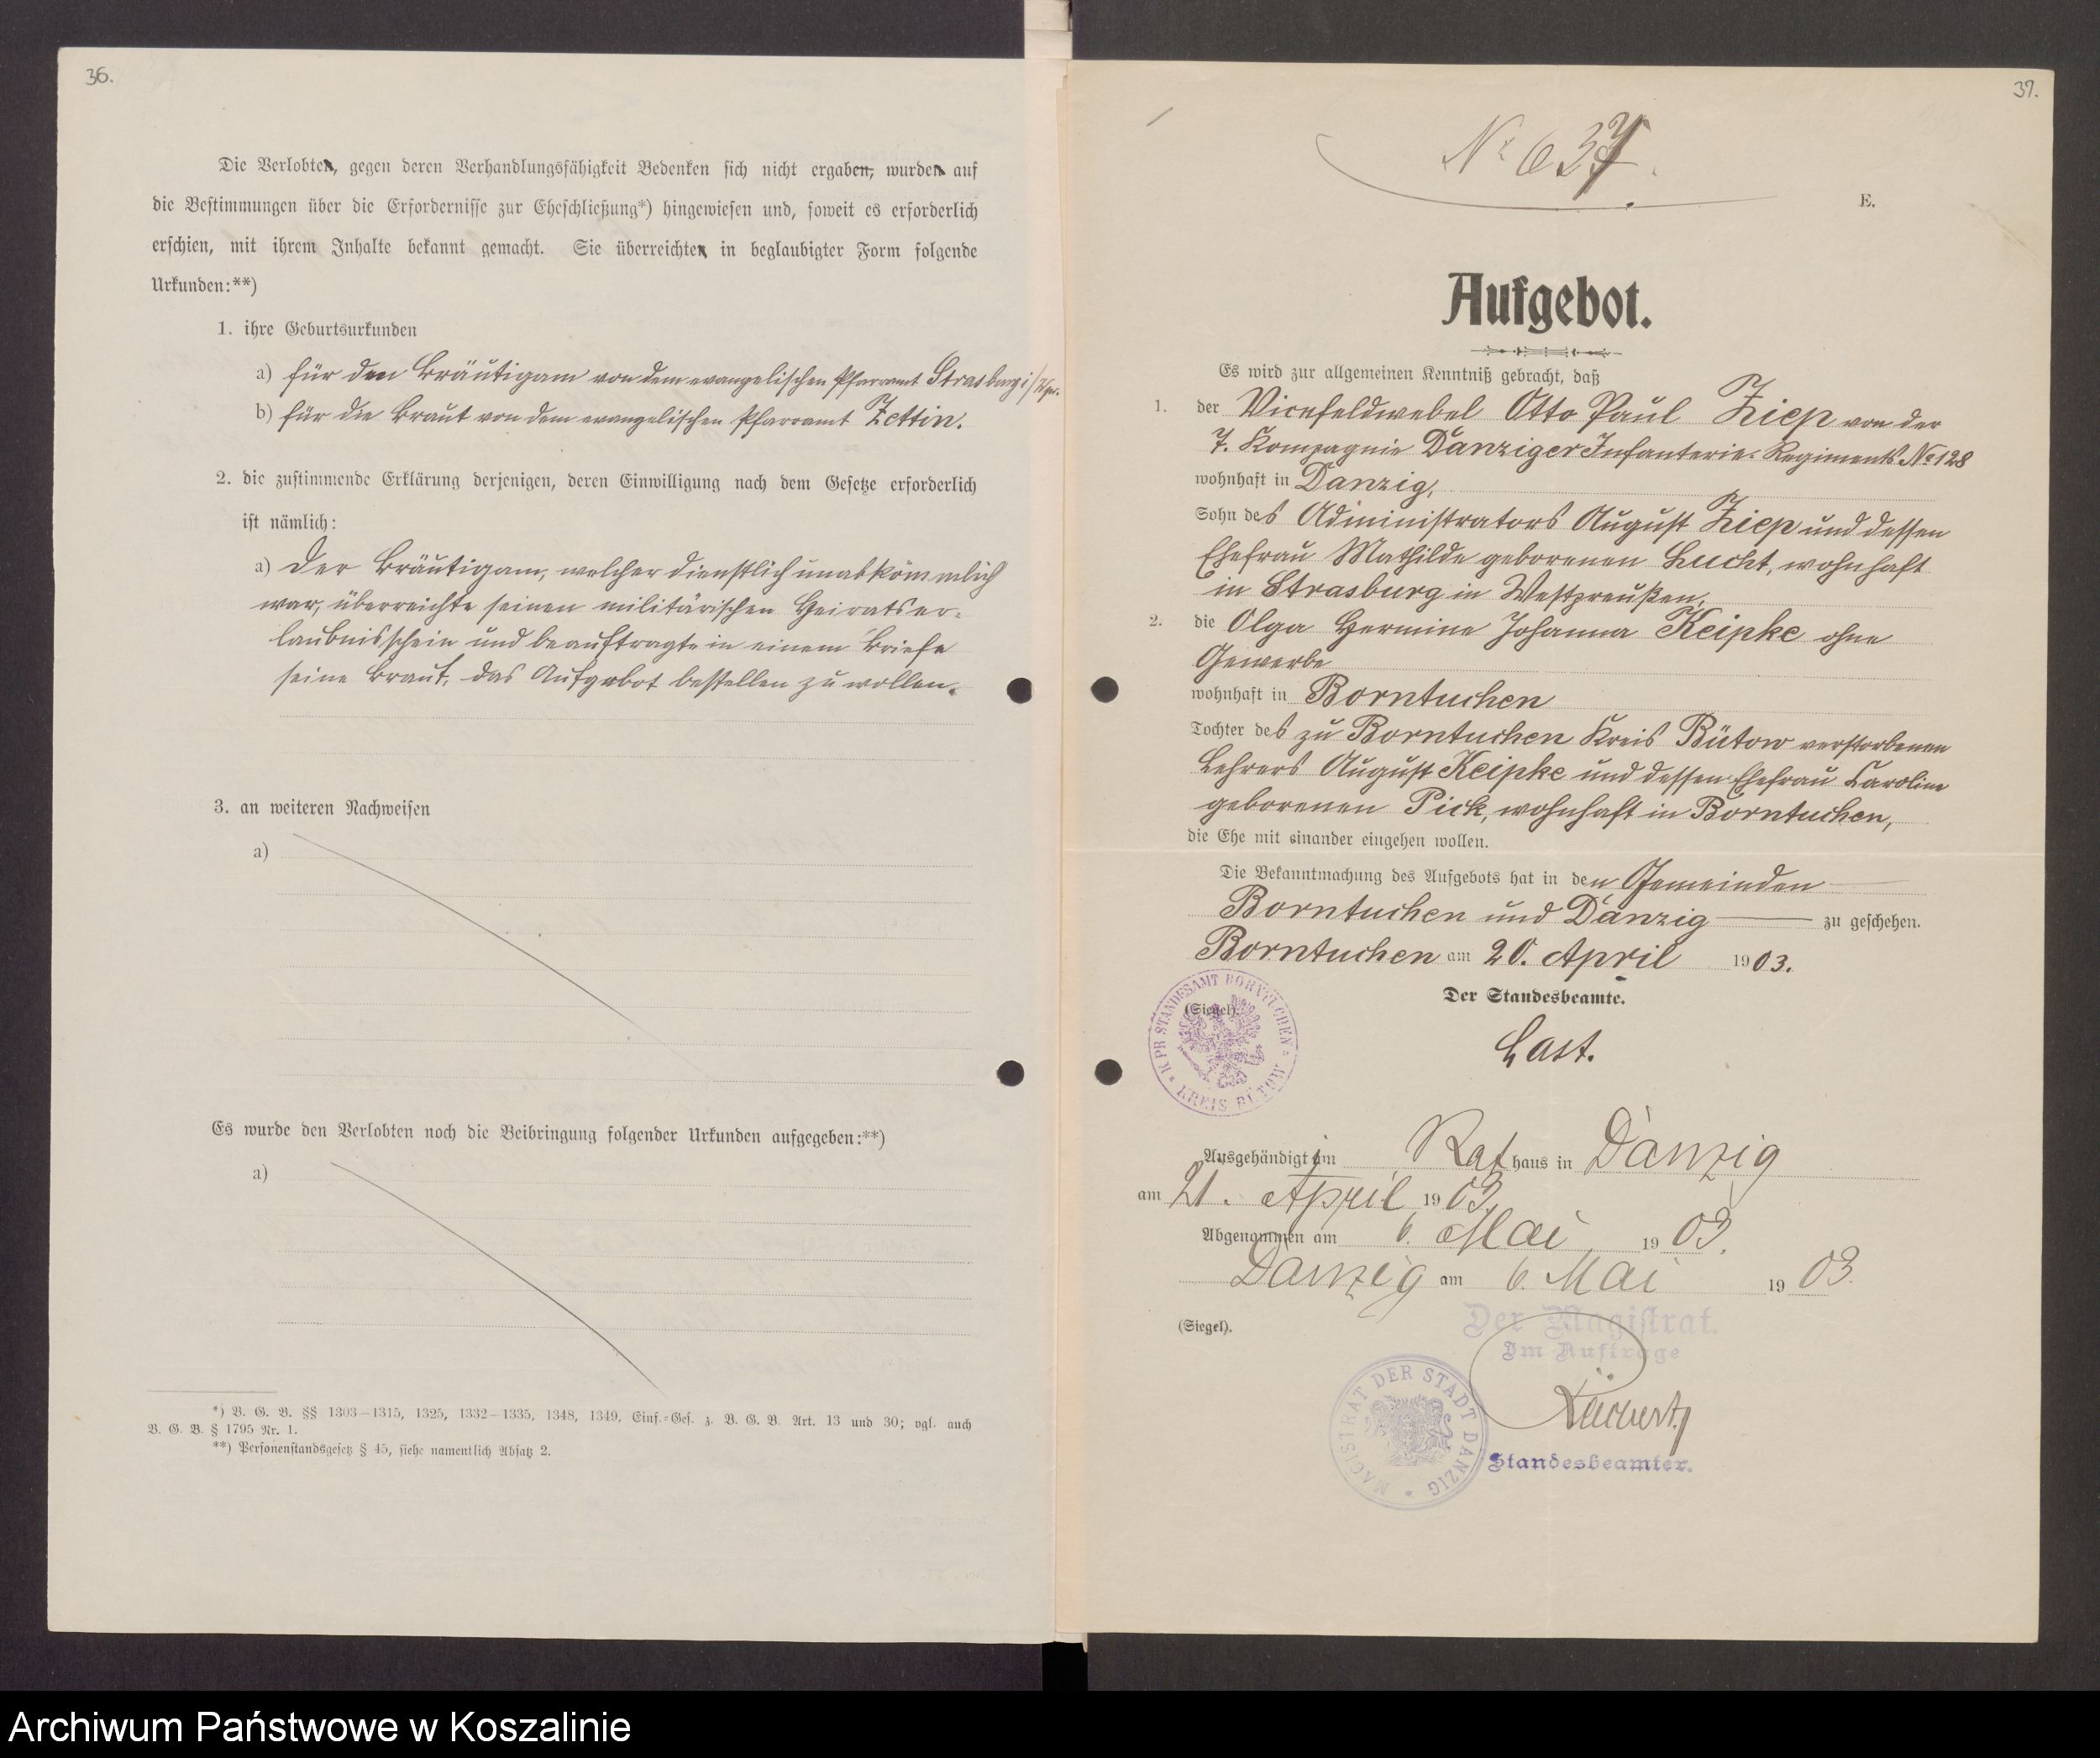 36.
Die Verlobten, gegen deren Verhandlungsfähigkeit Bedenken sich nicht ergaben, wurden auf
die Bestimmungen über die Erfordernisse zur Eheschließung*) hingewiesen und, soweit es erforderlich
erschien, mit ihrem Inhalte bekannt gemacht. Sie überreichten in beglaubigter Form folgende
Urkunden:**)
1. ihre Geburtsurkunden
a) für den Bräutigam von dem evangelischen Pfarramt Strasburg i/Wpr.
b) für die Braut von dem evangelischen Pfarramt Zettin.
2. die zustimmende Erklärung derjenigen, deren Einwilligung nach dem Gesetze erforderlich
ist nämlich:
a) Der Bräutigam, welcher dienstlich unabkömmlich
war, überreichte seinen militärischen Heiratser-
laubnisschein und beauftragte in einem Briefe
seine Braut, das Aufgebot bestellen zu wollen.
3. an weiteren Nachweisen
a)
Es wurde den Verlobten noch die Beibringung folgender Urkunden aufgegeben:**)
a)
*) B. G. B. §§ 1303–1315, 1325, 1332–1335, 1348, 1349, Einf.-Ges. z. B. G. B. Art. 13 und 30; vgl. auch
B. G. B. § 1795 Nr. 1.
**) Personenstandsgesetz § 45, siehe namentlich Absatz 2.
37.
E.
Aufgebot.
Es wird zur allgemeinen Kenntniß gebracht, daß
1. der Vicefeldwebel Otto Paul Ziep von der
7. Kompagnie Danziger Infanterie-Regiments No 128
wohnhaft in Danzig,
Sohn des Administrators August Ziep und dessen
Ehefrau Mathilde geborenen Lucht, wohnhaft
in Strasburg in Westpreußen,
2. die Olga Hermine Johanna Keipke ohne
Gewerbe
wohnhaft in Borntuchen
Tochter des zu Borntuchen Kreis Bütow verstorbenen
Lehrers August Keipke und dessen Ehefrau Caroline
geborenen Pick, wohnhaft in Borntuchen,
die Ehe mit einander eingehen wollen.
Die Bekanntmachung des Aufgebots hat in den Gemeinden
Borntuchen und Danzig zu geschehen.
Borntuchen am 20. April 1903.
Der Standesbeamte.
(Siegel).
K PR STANDESAMT BORNTUCHEN
KREIS BÜTOW
Last.
Ausgehändigt im Rathaus in Danzig
am 21. April 1903.
Abgenommen am 6. Mai 1903.
Danzig am 6. Mai 1903.
(Siegel).
Der Magistrat.
Im Auftrage
MAGISTRAT DER STADT DANZIG
Standesbeamter.
Archiwum Państwowe w Koszalinie